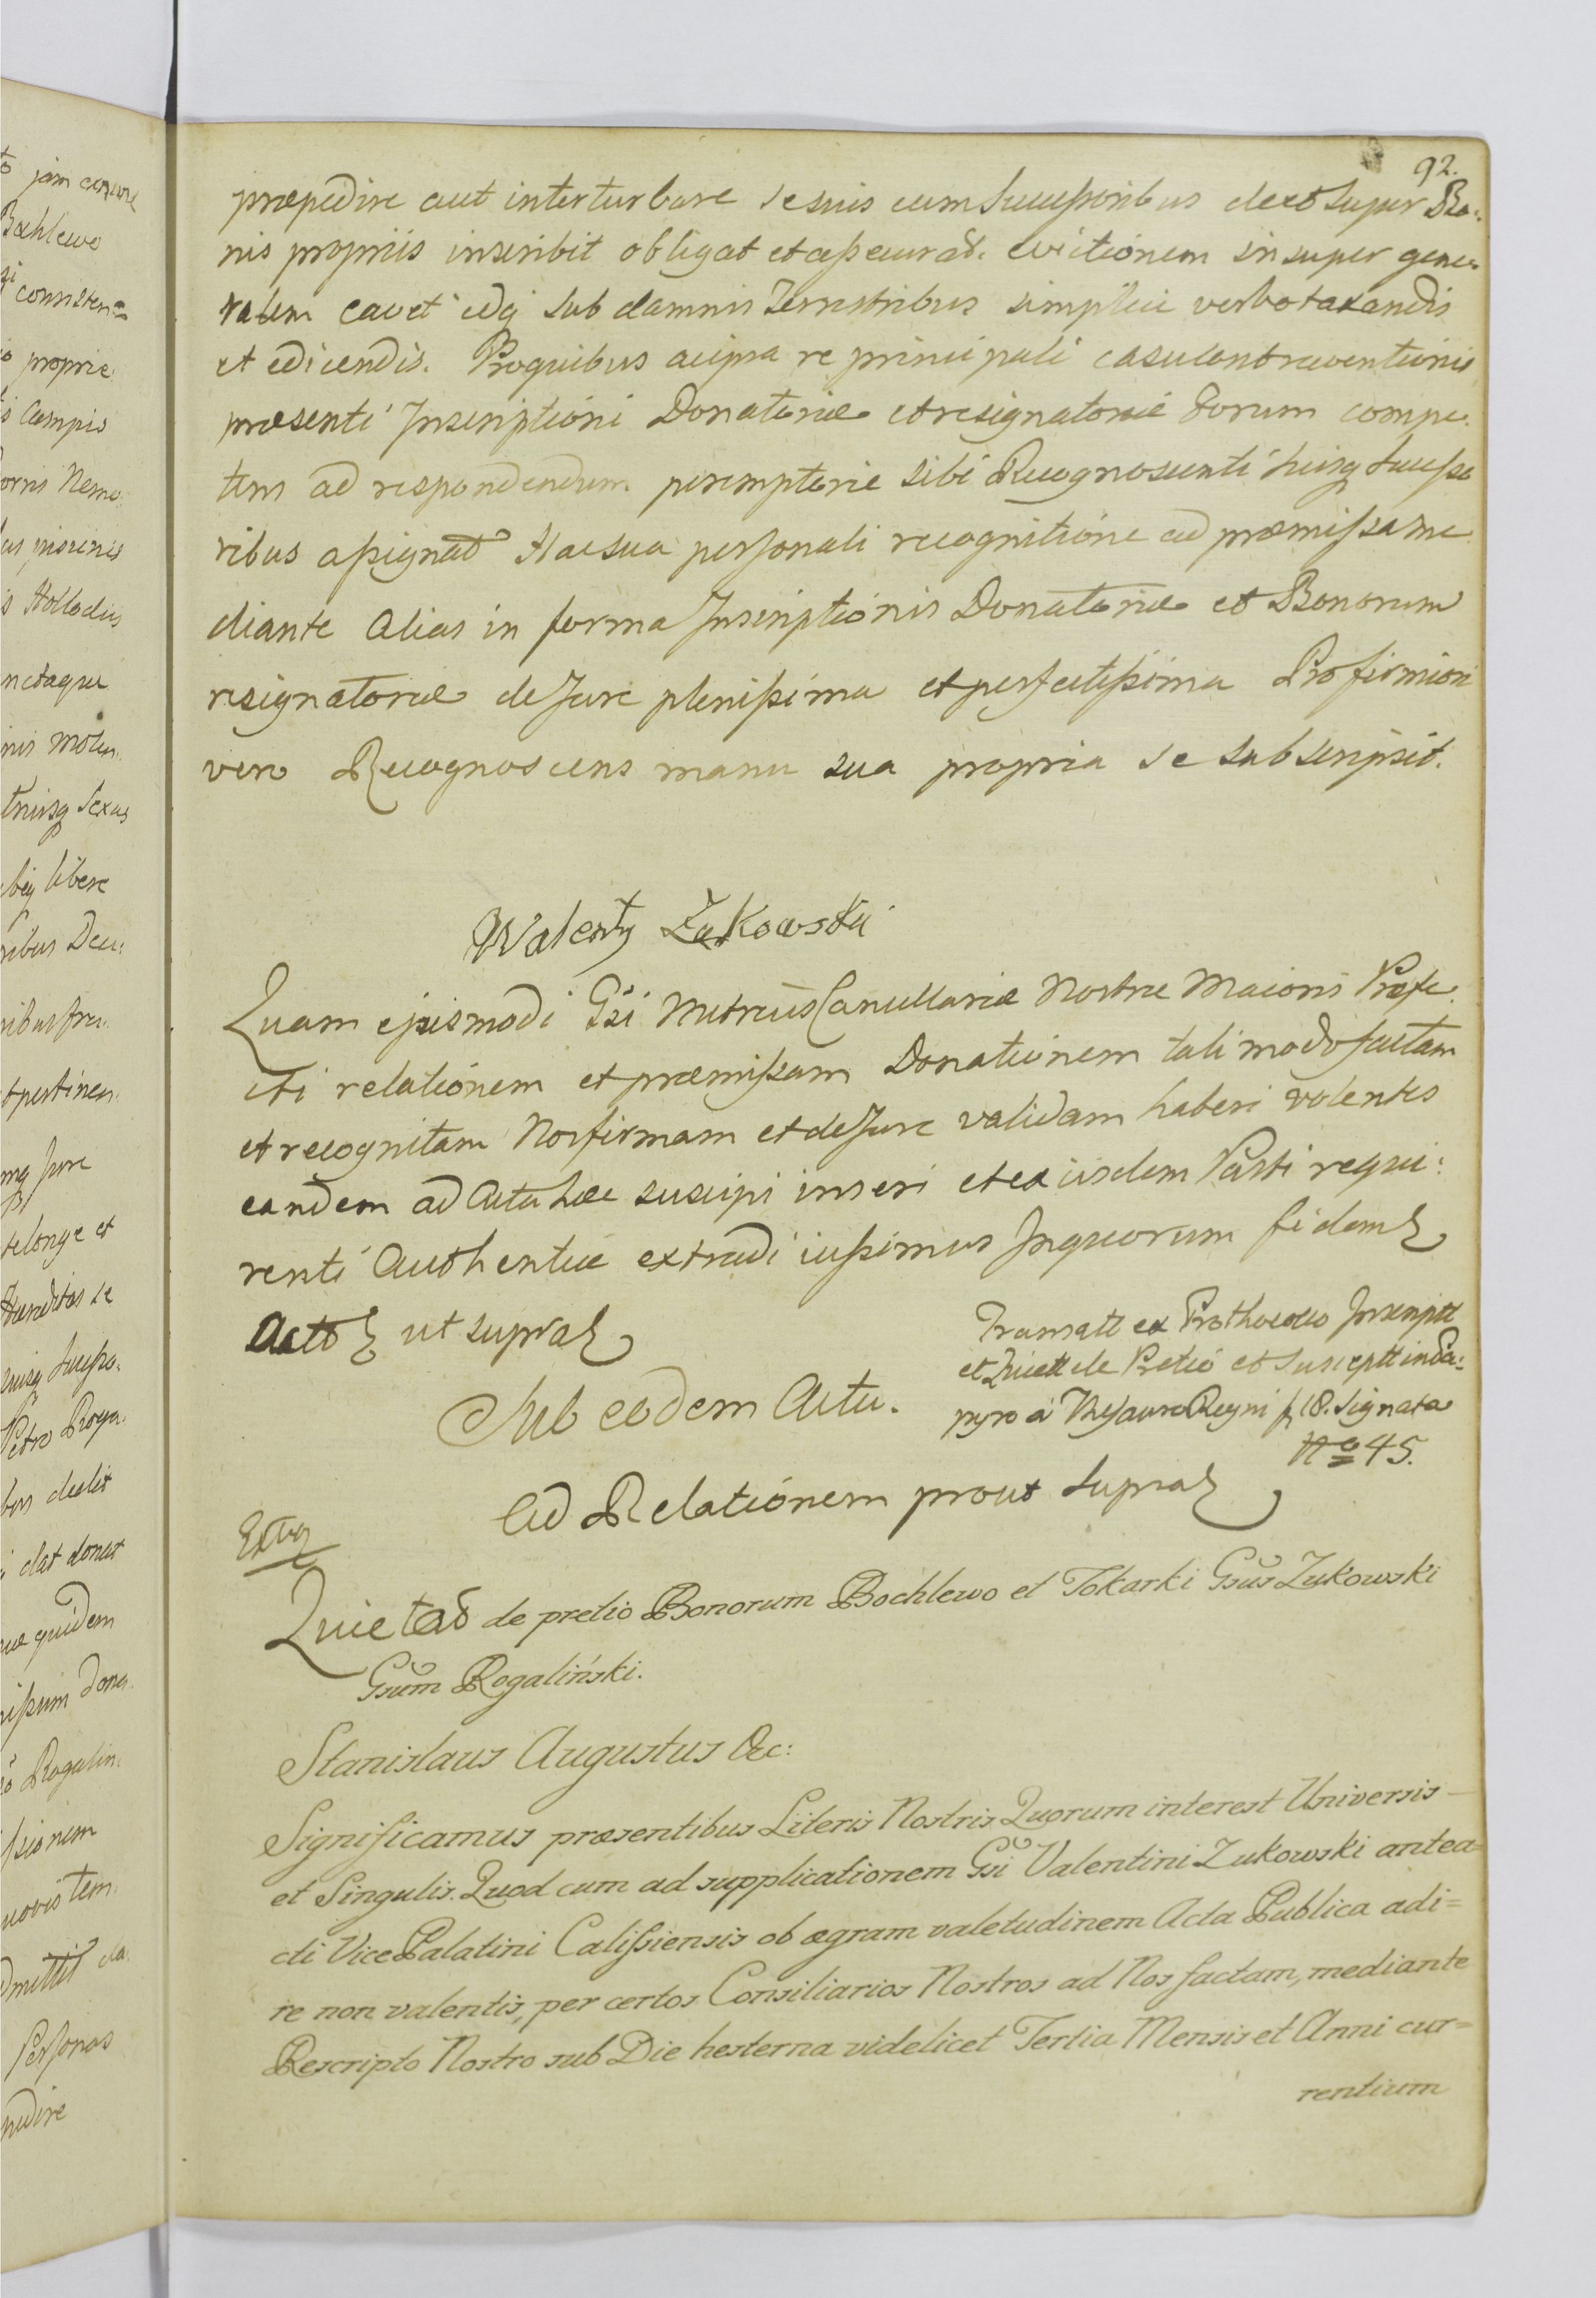 92.
præpedire aut interturbare se suis cum Successoribus de et super Bo:
nis propriis inscribit obligat et assecurat. Evictionem insuper gene=
ralem cavet idq sub damnis Terrestribus simplici verbo taxandis
et edicendis. Pro quibus ac ipsa re principali casu contraventionis
præsenti Inscriptioni Donatoriæ et resignatoriæ Forum compe.
tens ad respondendum peremptorie sibi Recognoscenti suisq Succeſso
ribus aſsignat Hac sua perſonali recognitione ad præmiſsa me
diante Alias in forma Inscriptionis Donatoriæ et Bonorum
resignatoriæ de Jure pleniſsima et perfectiſsima Pro firmiori
vero Recognoscens manu sua propria se subscripsit.
Walenty Zukowski
Quam ejusmodi Gsi Metrices Cancellariæ Nostræ Maioris Præfe.
cti relationem et præmiſsam Donationem tali modo factam
et recognitam Nos firmam et de Jure validam haberi volentes
eandem ad Acta hæc suscipi inseri et ex iisdem Parti requi:
renti Authentice extradi iuſsimus In quorum fidem
Actt ut supra
Transatt ex Prothocollo Inscriptt
et Quiett de Pretio et Susceptt in Pa:
pyro a Thesauro Regni fl 18. Signata
No 45.
Sub eodem Actu.
Ad Relationem prout Supra
Extr
Quietat de pretio Bonorum Bochlewo et Tokarki Gsus Zukowski
Gsum Rogaliński.
Stanislaus Augustus &c:
Significamus præsentibus Literis Nostris Quorum interest Universis
et Singulis. Quod cum ad supplicationem Gsi Valentini Zukowski antea=
cti Vice Palatini Caliſsiensis ob ægram valetudinem Acta Publica adi=
re non valentis, per certos Consiliarios Nostros ad Nos factam, mediante
Rescripto Nostro sub Die hesterna videlicet Tertia Mensis et Anni cur=
rentium